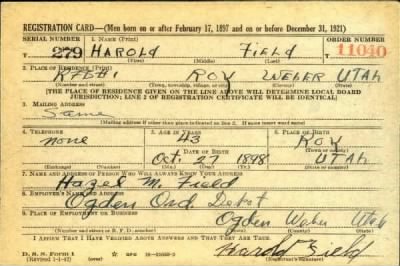 REGISTRATION CARD—(Men born on or after February 17, 1897 and on or before December 31, 1921)
SERIAL NUMBER 1. NAME (Print) ORDER NUMBER
279 HAROLD FIELD 11040
(First) (Middle) (Last)
2. PLACE OF RESIDENCE (Print)
RFD#1 ROY WEBER UTAH
(Number and street) (Town, township, village, or city) (County) (State)
[THE PLACE OF RESIDENCE GIVEN ON THE LINE ABOVE WILL DETERMINE LOCAL BOARD
JURISDICTION; LINE 2 OF REGISTRATION CERTIFICATE WILL BE IDENTICAL]
3. MAILING ADDRESS
Same
[Mailing address if other than place indicated on line 2. If same insert word same]
4. TELEPHONE 5. AGE IN YEARS 6. PLACE OF BIRTH
none 43 Roy
DATE OF BIRTH (Town or county)
Oct. 27 1898 UTAH
(Exchange) (Number) (Mo.) (Day) (Yr.) (State or country)
7. NAME AND ADDRESS OF PERSON WHO WILL ALWAYS KNOW YOUR ADDRESS
Hazel M. Field
8. EMPLOYER'S NAME AND ADDRESS
Ogden Ord Depot
9. PLACE OF EMPLOYMENT OR BUSINESS
Ogden Weber Utah
(Number and street or R. F. D. number) (Town) (County) (State)
I AFFIRM THAT I HAVE VERIFIED ABOVE ANSWERS AND THAT THEY ARE TRUE.
D. S. S. Form 1
(Revised 1-1-42) (over) Harold Field
(Registrant's signature)